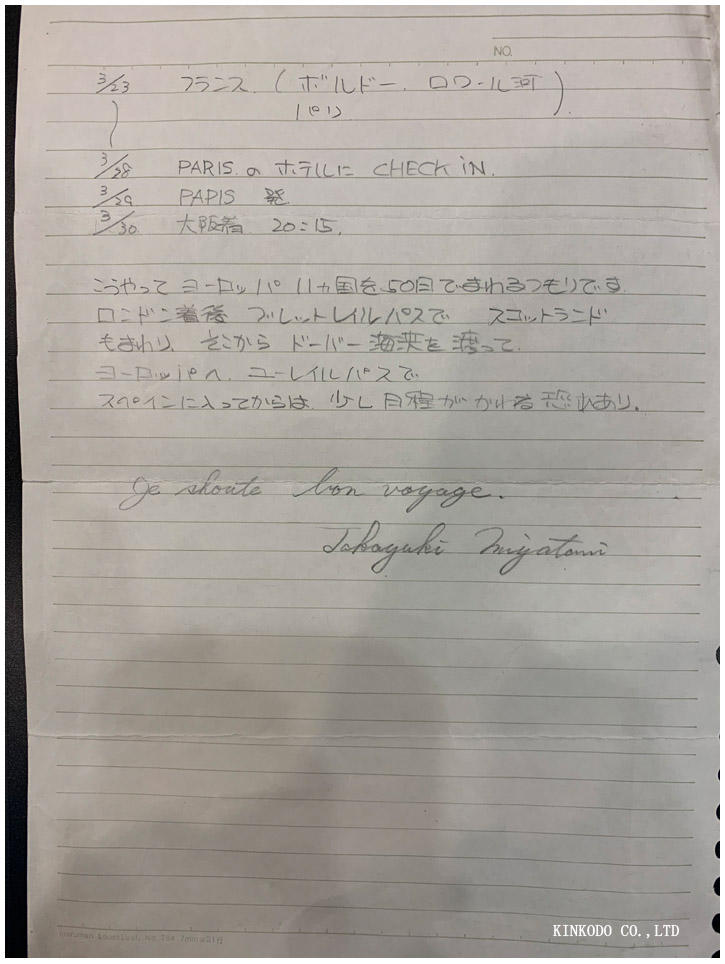 NO.
3/23 フランス. (ボルドー. ロワール河
パリ)
3/28 PARIS. の ホテルに CHECK iN.
3/29 PAPIS 発
3/30 大阪着 20:15.
こうやって ヨーロッパ 11ヵ国を 50日でまわるつもりです.
ロンドン着後 ブレットレイルパスで スコットランド
もまわり、そこから ドーバー海夾を渡って.
ヨーロッパへ. ユーレイルパスで
スペインに入ってからは. 少し日程がかわる恐れあり.
Je shoute bon voyage.
Takayuki Miyatani
KINKODO CO.,LTD